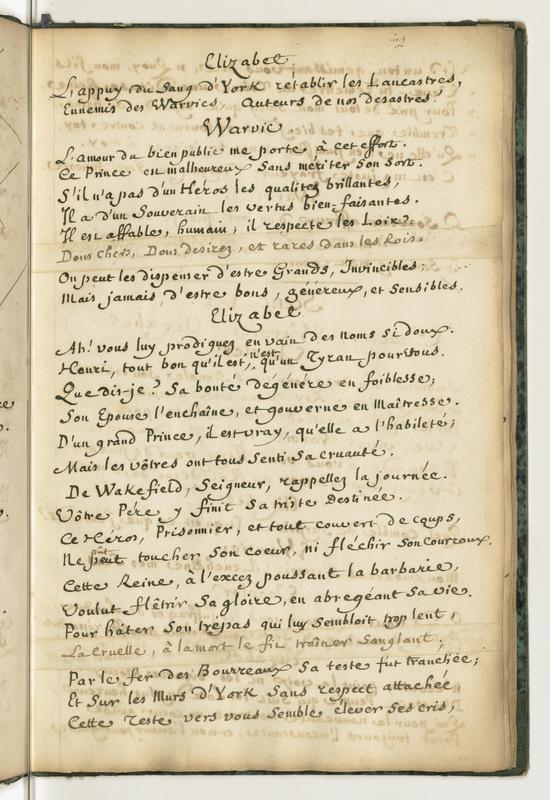 Elizabet.
L'appuy du Sang d'York rétablir les Lancastres,
Ennemis des Warvics, Auteurs de nos desastres!
Warvic.
L'amour du bien public me porte à cet effort.
Ce Prince est malheureux sans mériter son sort.
S'il n'a pas d'un Heros les qualitez brillantes,
Il a d'un Souverain les vertus bien-faisantes.
Il est affable, humain, il respecte les Loix:
Dons chers, Dons desirez, et rares dans les Rois.
On peut les dispenser d'estre Grands, Invincibles;
Mais jamais d'estre bons, généreux, et sensibles.
Elizabet
Ah! vous luy prodiguez en vain des noms si doux.
Henri, tout bon qu'il est, n'est qu'un Tyran pour vous.
Que dis-je? Sa bonté dégénére en foiblesse;
Son Epouse l'enchaîne, et gouverne en Maîtresse.
D'un grand Prince, il est vray, qu'elle a l'habileté;
Mais les vôtres ont tous senti sa cruauté.
De Wakefield, Seigneur, rappellez la journée.
Vôtre Pére y finit sa triste Destinée.
Ce Héros, Prisonnier, et tout couvert de coups,
Ne pût peut toucher son coeur, ni fléchir son courroux.
Cette Reine, à l'excez poussant la barbarie,
Voulut flêtrir sa gloire, en abregéant sa vie.
Pour hâter son trépas qui luy sembloit trop lent,
La Cruelle, à la mort le fit traîner sanglant;
Par le fer des Bourreaux sa teste fut tranchée;
Et sur les Murs d'York sans respect attachée,
Cette Teste vers vous semble élever ses cris,